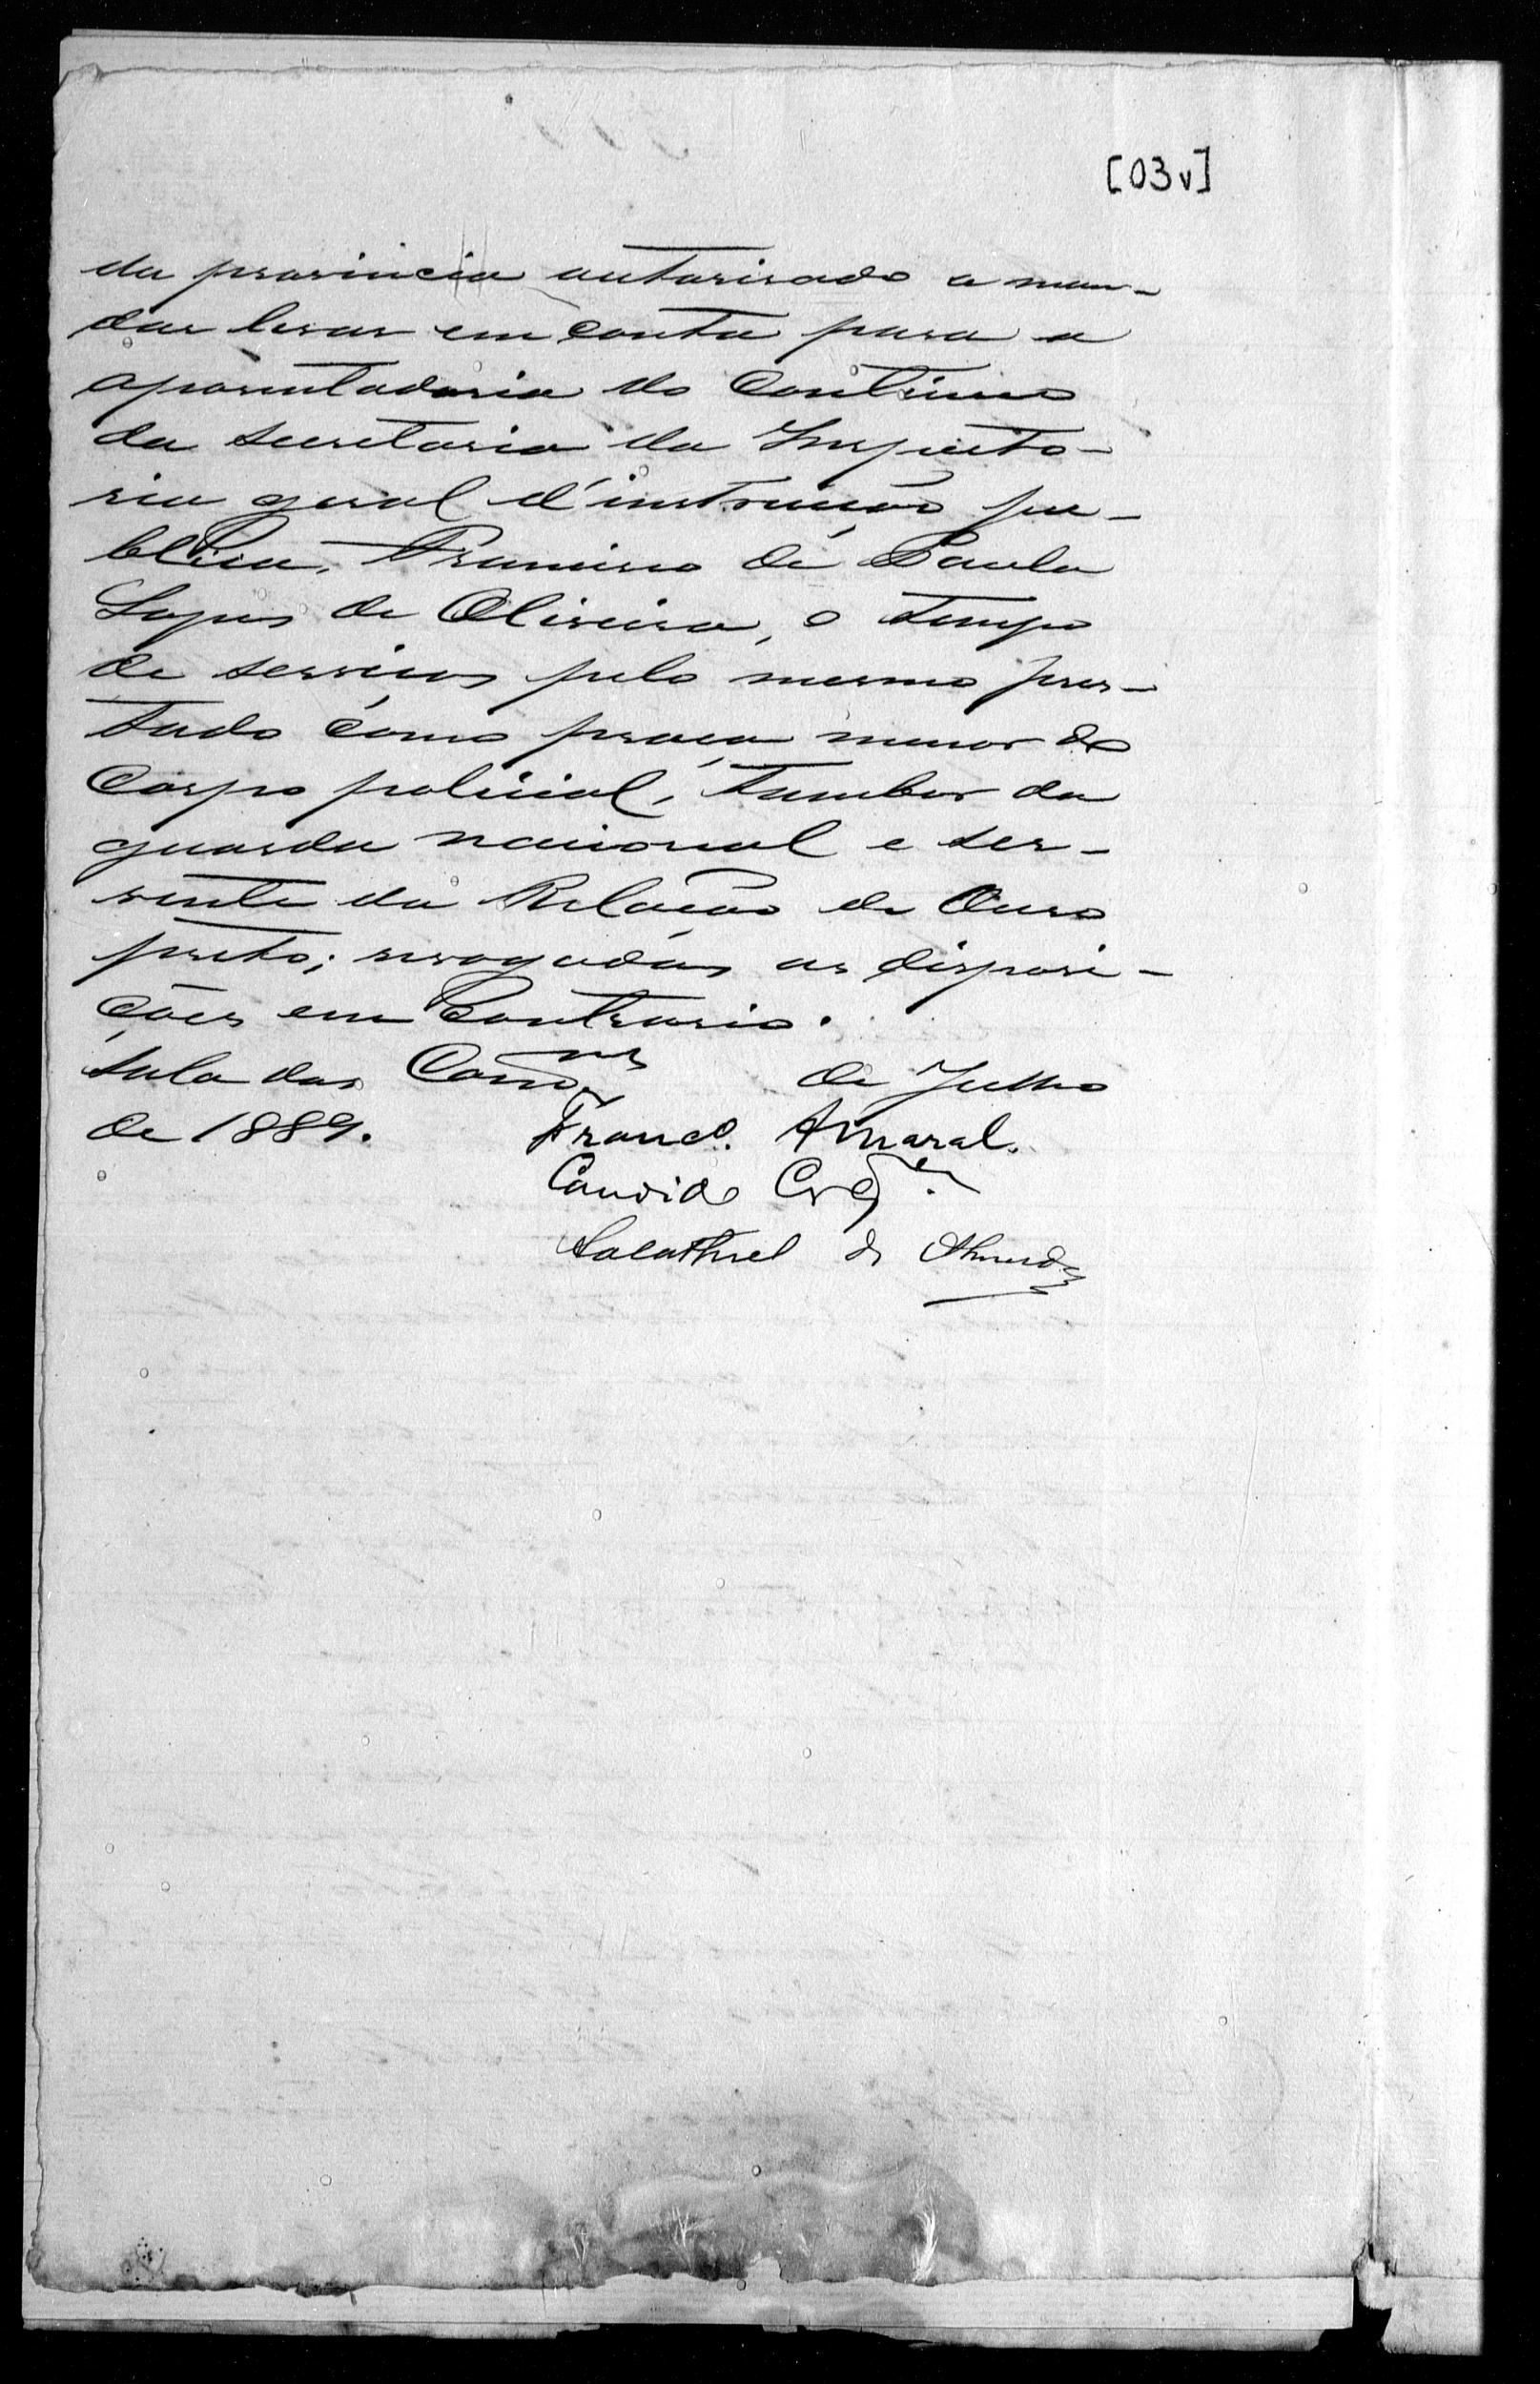 [03v]
da provincia autorisado a man-
dar levar em conta para a
aposentadoria do Continuo
da secretaria da Inspecto-
ria geral d'instrucção pu-
blica, Francisco de Paula
Lopes de Oliveira, o tempo
de serviços pelo mesmo pres-
tado como praça menor do
Corpo policial, tambor da
guarda nacional e ser-
vente da Relação de Ouro
preto; revogadas as disposi-
ções em Contrario.
Sala das Com.es de Julho
de 1889. Franco. Amaral.
Candido
Salathiel de Almeida